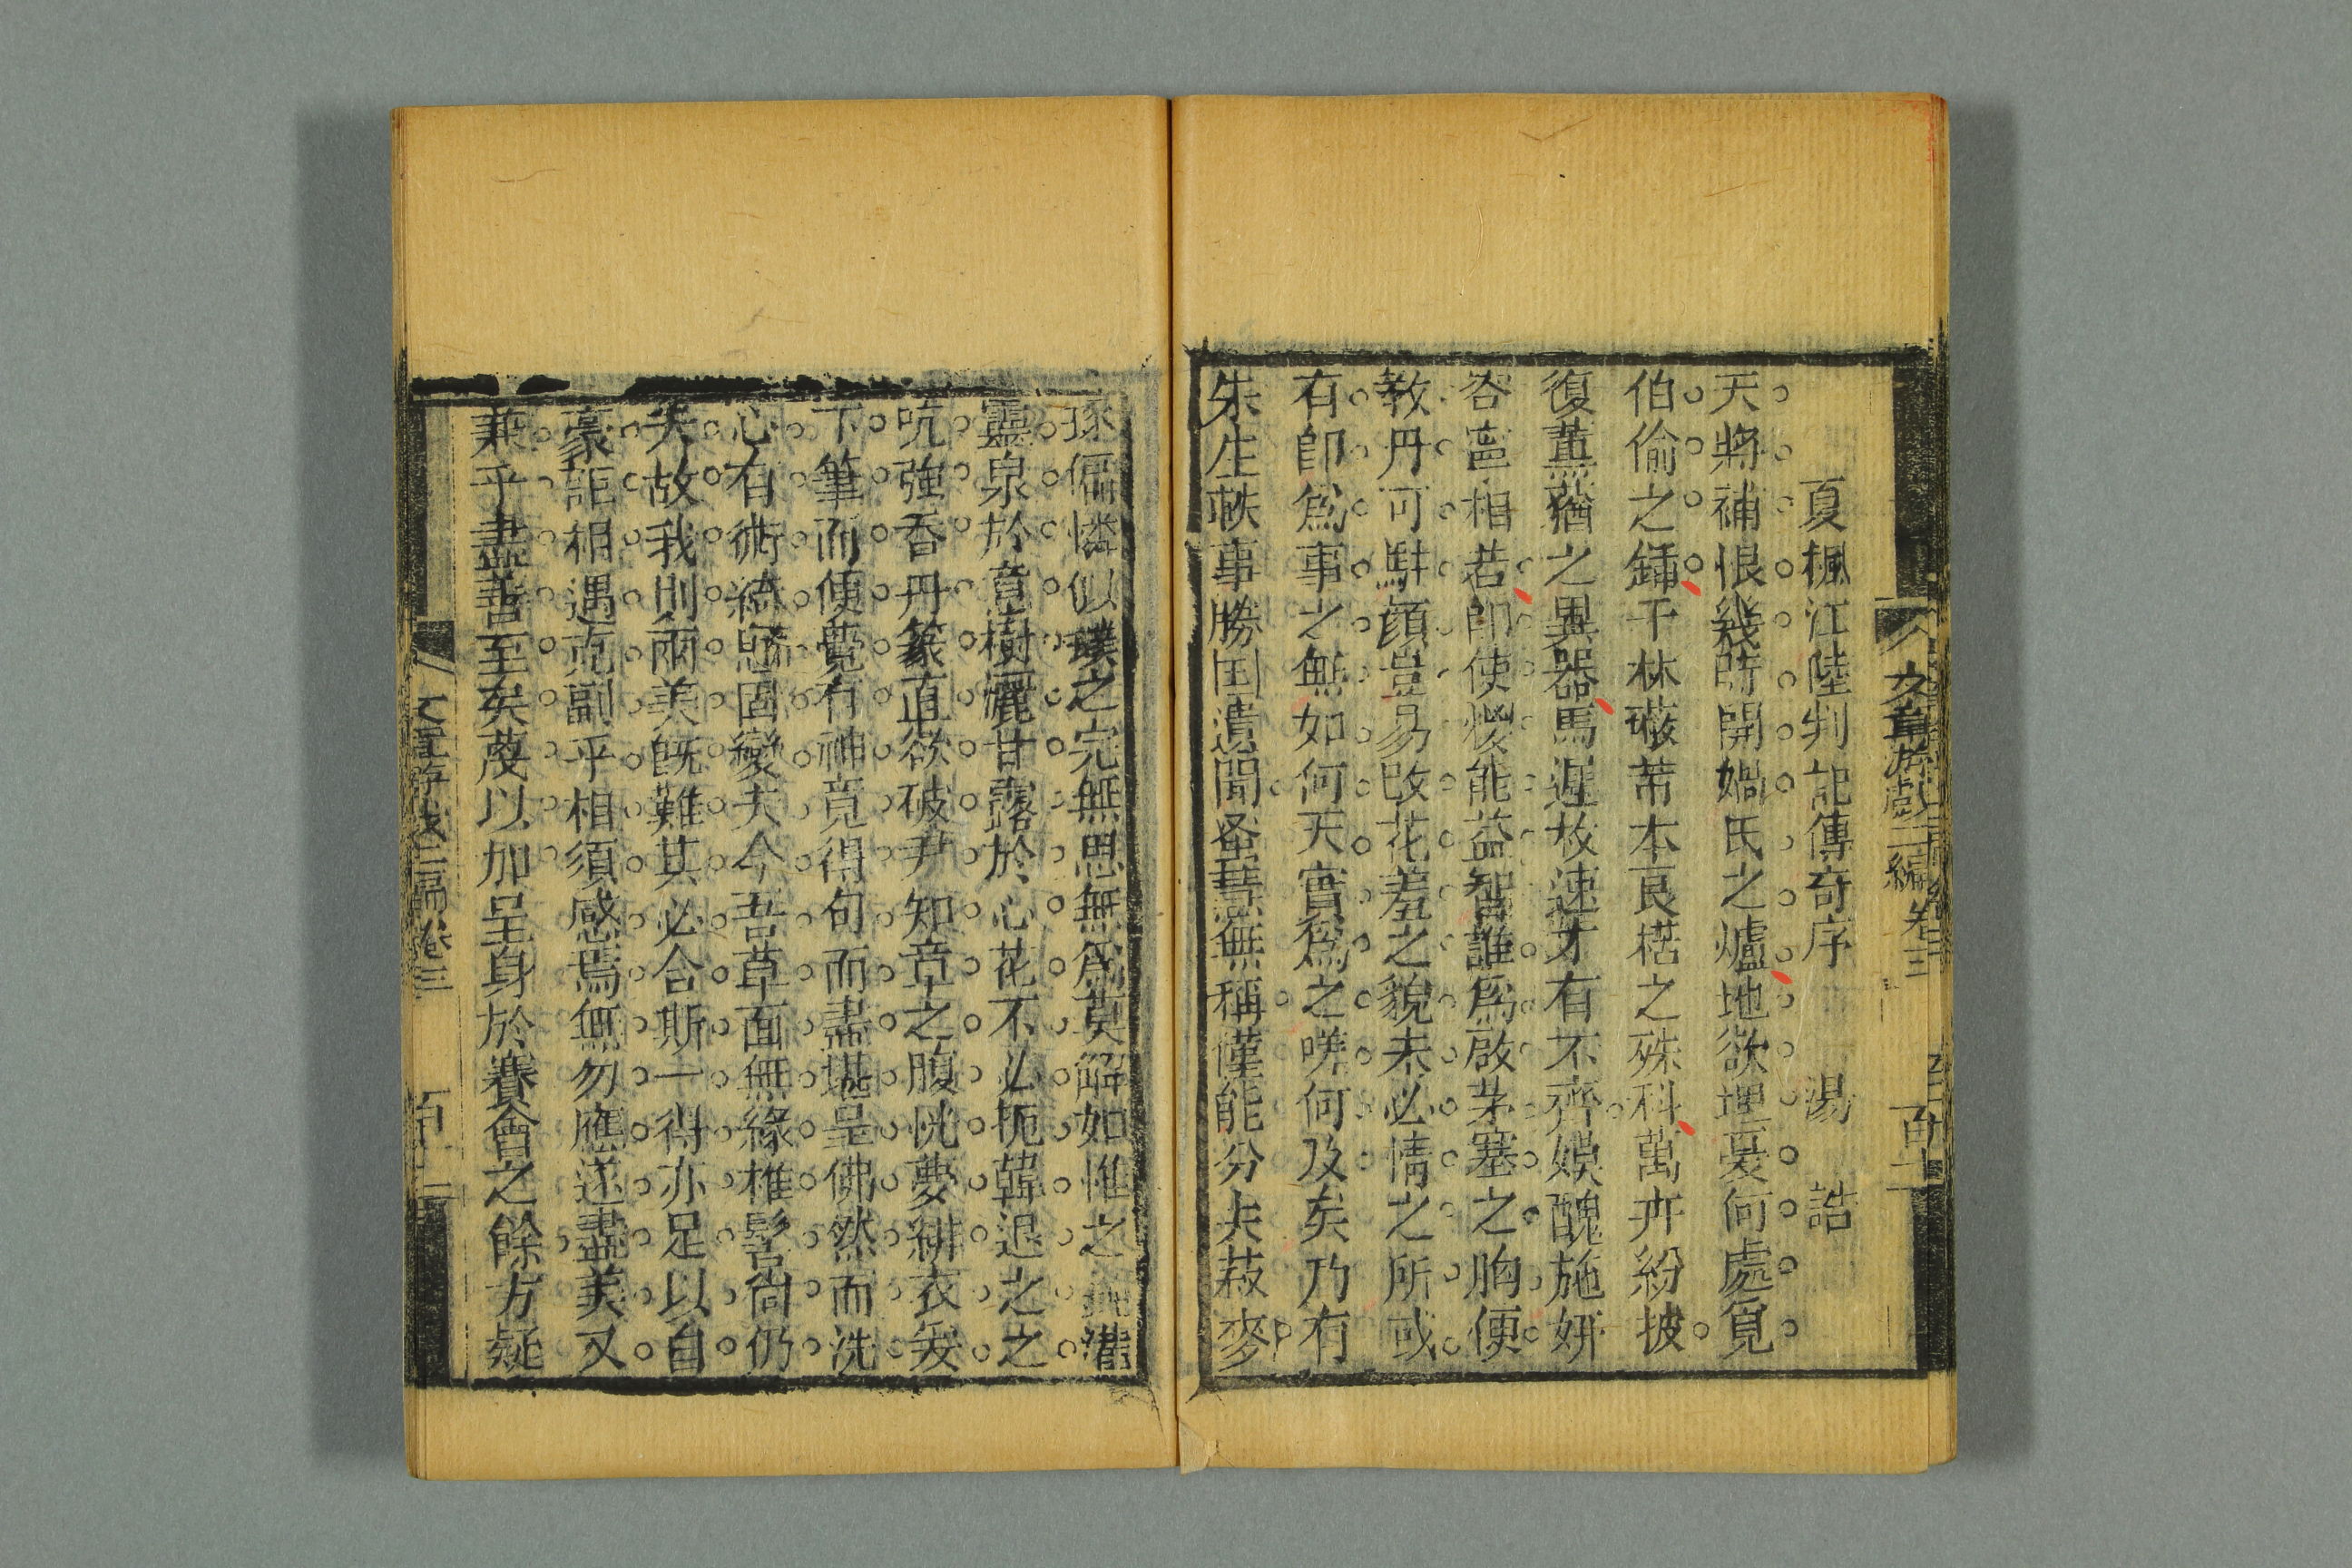 文章游戲二編卷三
百十
夏楓江陸判記傳奇序 湯誥
天將補恨幾時開媧氏之爐地欲埋憂何處覓
伯倫之鍤千林蔽芾本良楛之殊科萬卉紛披
復薰蕕之異器馬遲枚速才有不齊嫫醜施妍
容寧相若即使煖能益智誰爲啟茅塞之胸便
教丹可駐顏豈易改花羞之貌未必情之所或
有即爲事之無如何天實爲之嗟何及矣乃有
朱生軼事勝国遺聞蚤慧無稱僅能分夫菽麥
琢傴憐似璞之完無思無爲莫解如惟之 灌
靈泉於意樹灑甘露於心花不必扼韓退之之
吭強吞丹篆直欲破尹知章之腹恍夢緋衣爰
下筆而便覺有神竟得句而盡堪呈佛然而洗
心有術繞 固變夫今吾革面無緣椎髻尙仍
夫故我則兩美旣難其必合斯一得亦足以自
豪詎相遇克副乎相須感焉無勿應遂盡美又
兼乎盡善至矣蔑以加呈身於賽會之餘方疑
文章游戲二編卷三
百十一